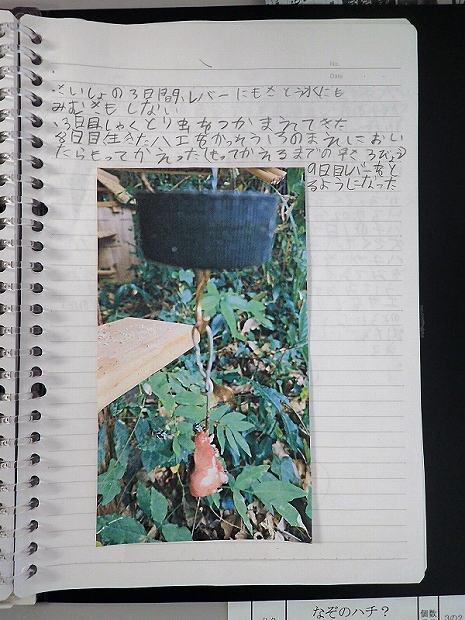 No.
Date
・さいしょの3日間、レバーにもさとう水にも
みむきもしない
・3日目しゃくとり虫をつかまえてきた
8日目生きたハエをかっそうろのまえにおい
たらもってかえった(もってかえるまでの早さ3びょう)
9日目レバーをと
るようになった
なぞのハチ?
個数